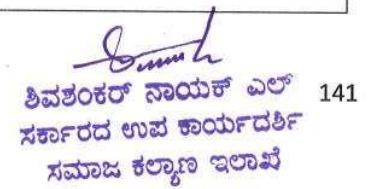 ಶಿವಶಂಕರ್ ನಾಯಕ್ ಎಲ್ 141
ಸರ್ಕಾರದ ಉಪ ಕಾರ್ಯದರ್ಶಿ
ಸಮಾಜ ಕಲ್ಯಾಣ ಇಲಾಖೆ